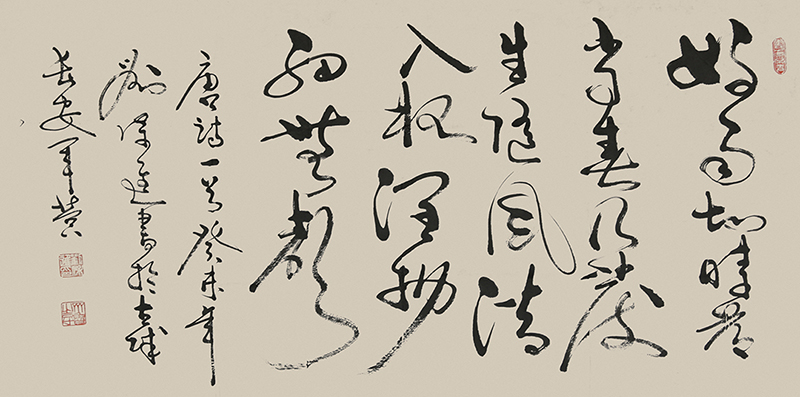 好雨知時節
當春乃發
生隨風潛
入夜潤物
細無聲
唐詩一首癸未年
劉書於古城
長安軍營